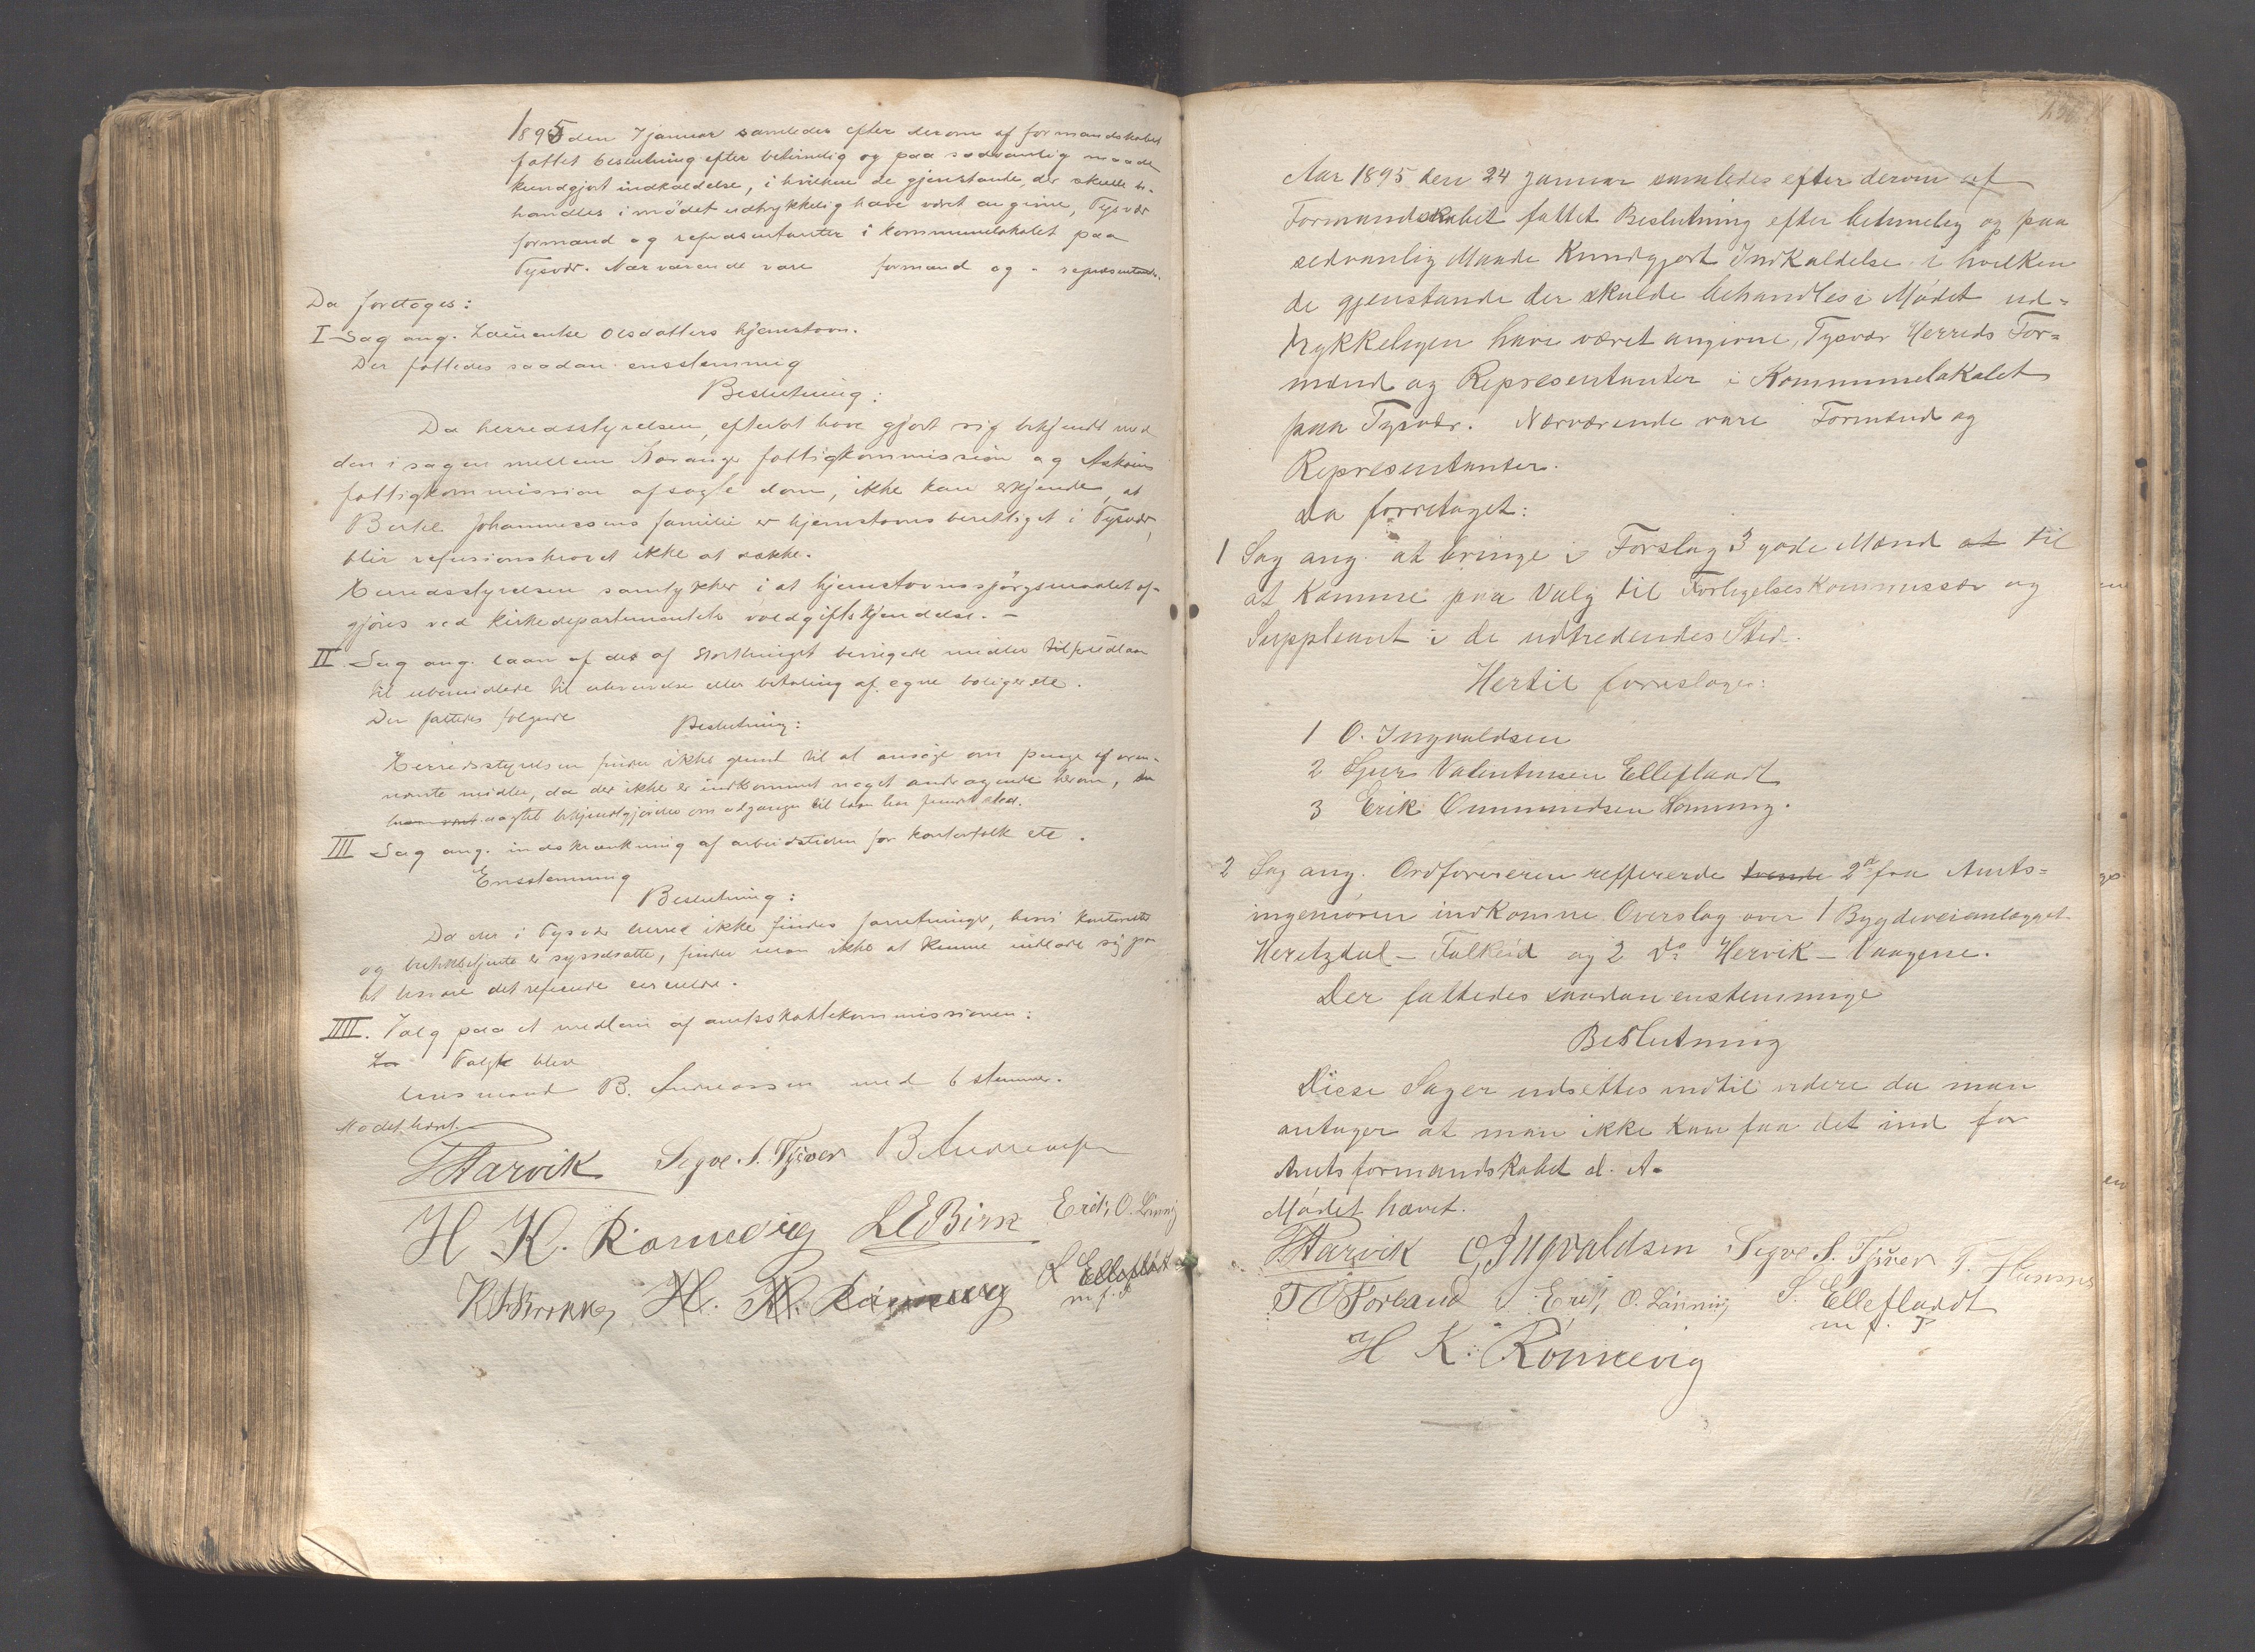 1895 den 7 januar samledes efter derom af formandskabet
fattet beslutning efter betimelig og paa sædvanlig maade
kundgjort indkaldelse, i hvilken de gjenstande, der skulde be-
handles i mødet udtrykkelig have været angivne, Tysvær
formænd og repræsentanter i kommunelokalet paa
Tysvær. Nærværende vare formænd og - repræsentanter.
Da foretoges:
I Sag ang. Olsdatters hjemstavn.
Der fattedes saadan enstemmig
Beslutning:
Da herredsstyrelsen, efterat have gjort sig bekjendt med
den i sagen mellem fattigkommission og
fattigkommission afsagte dom, ikke kan erkjende, at
Bertel Johannessens familie er hjemstavnsberettiget i Tysvær,
blir refusionskravet ikke at dække.
Herredsstyrelsen samtykker i at hjemstavnsspørgsmaalet af-
gjøres ved kirkedepartementets voldgiftskjendelse. -
II Sag ang. laan af det af Storthinget bevilgede midler til
til ubemidlede til eller betaling af egne boliger etc.
Der fattedes følgende Beslutning:
Herredsstyrelsen finder ikke grund til at ansøge om penge af oven-
nævnte midler, da der ikke er indkommet noget andragende herom,
uagtet bekjendtgjørelse om adgangen til laan har fundet sted.
III Sag ang. indskrænkning af arbeidstiden for kontorfolk etc.
Enstemmig
Beslutning:
Da der i Tysvær herred ikke findes forretninger, hvori kontorister
og butikbetjente er sysselsatte, finder man ikke at kunne indlade sig paa
at besvare det refererede circulære.
IIII. Valg paa et medlem af amtsskattekommissionen:
Valgt blev
lensmand B. Andreassen med 6 stemmer.
Mødet hævet.
Harvik Sigve S. Tysver B Andreassen
H K. Rønnevig L E Birk Erik O. Lønning
K H. K. Rønnevig S Elleflaat
m. f. P
Aar 1895 den 24 Januar samledes efter derom af
Formandskabet fattet Beslutning efter betimelig og paa
sedvanlig Maade Kundgjort Indkaldelse i hvilken
de gjenstande der skulde behandles i Mødet ud=
trykkeligen have været angivne, Tysvær Herreds For=
mænd og Representanter i Kommunelokalet
paa Tysvær. Nærværende vare Formænd og
Representanter.
Da forretaget:
1 Sag ang. at bringe i Forslag 3 gode Mænd at til
at Komme paa Valg til Forligelseskommissær og
Suppleant i de udtredendes Sted.
Hertil foresloges:
1 O. Ingvaldsen
2 Sjur Valentinsen Elleflaadt
3 Erik Ommundsen Lønning.
2 Sag ang. Ordføreren reffererede 2de fra Amts=
ingeniøren indkomne Overslag over 1 Bygdeveianlægget
Heretzdal - Falkeid og 2 Do Hervik - Vaagene.
Der fattedes saadan enstemmige
Beslutning
Disse Sager udsettes indtil videre da man
antager at man ikke kan faa det ind for
Amtsformandskabet d. A.
Mødet hævet.
Harvik O, Ingvaldsen Sigve S. Tysver
T O Førland Erik O. Lønning S. Elleflaadt
m f. P
H K. Rønnevig